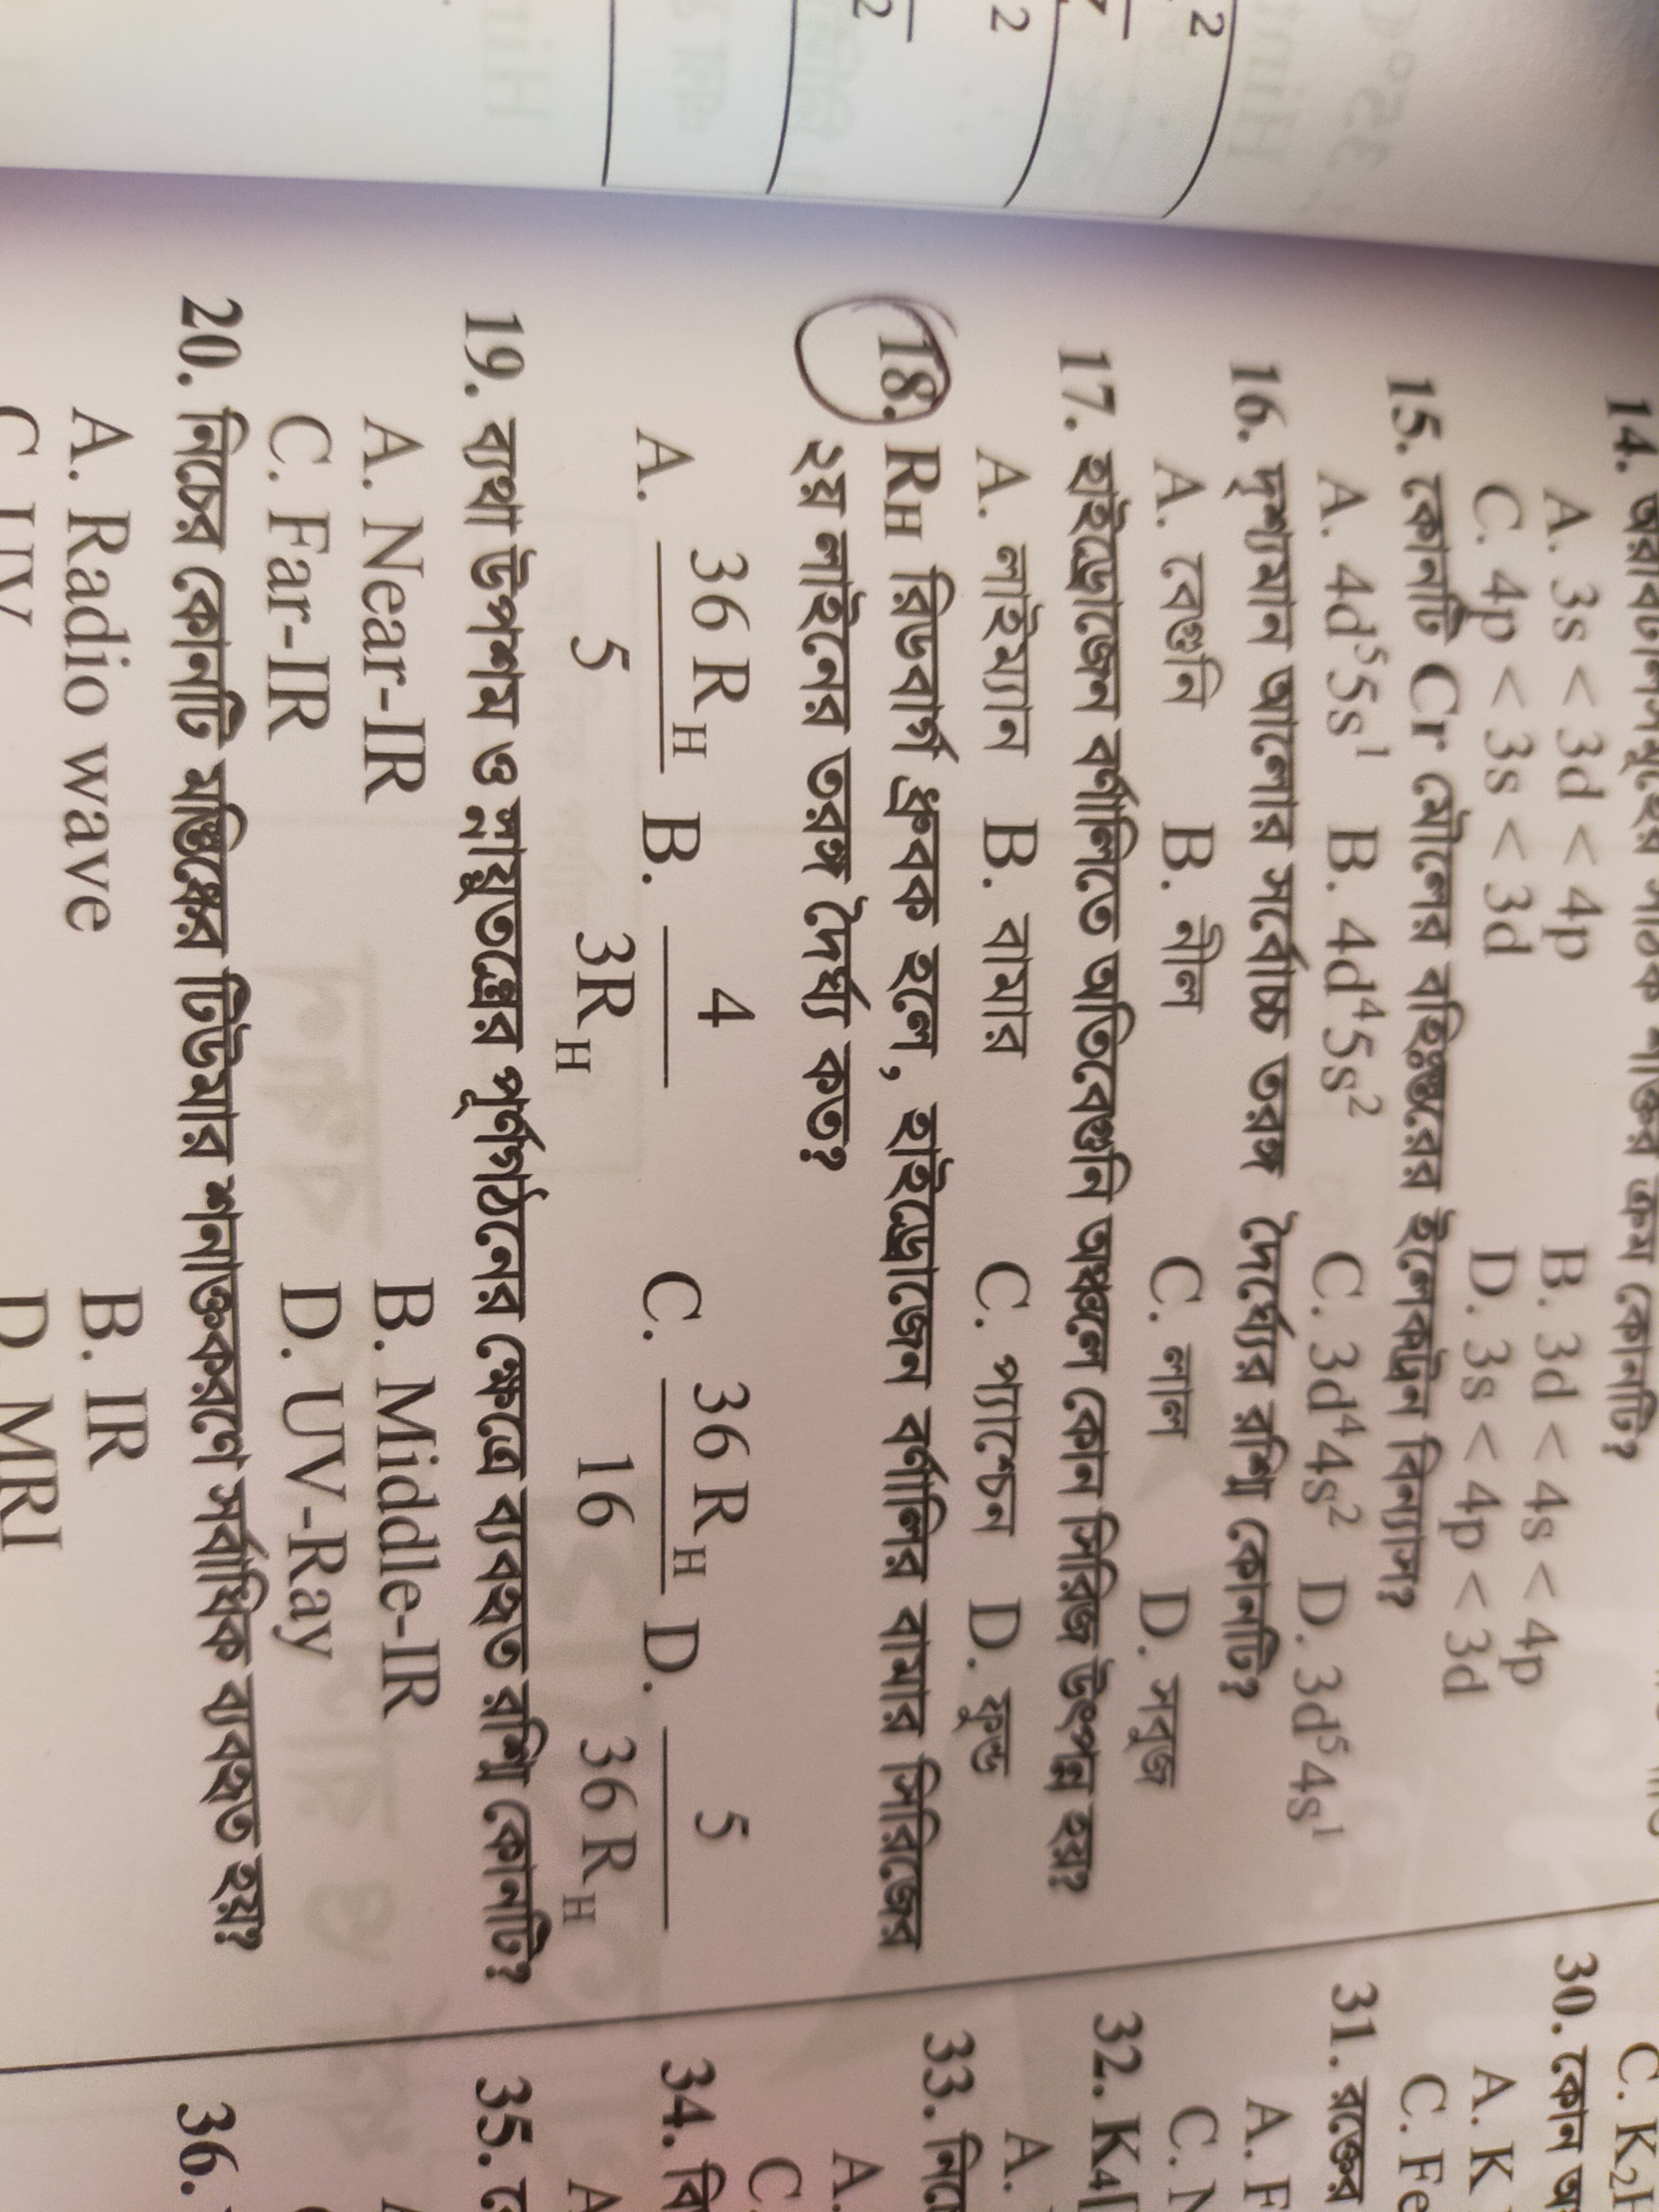 A. 3s < 3d < 4p B. 3d < 4s < 4p
C. 4p < 3s < 3d D. 3s < 4p < 3d
15. কোনটি Cr মৌলের বহিঃস্তরের ইলেকট্রন বিন্যাস?
A. 4d⁵5s¹ B. 4d⁴5s² C. 3d⁴4s² D. 3d⁵4s¹
16. দৃশ্যমান আলোর সর্বোচ্চ তরঙ্গ দৈর্ঘ্যের রশ্মি কোনটি?
A. বেগুনি B. নীল C. লাল D. সবুজ
17. হাইড্রোজেন বর্ণালিতে অতিবেগুনি অঞ্চলে কোন সিরিজ উৎপন্ন হয়?
A. লাইম্যান B. বামার C. প্যাশ্চেন D. ফুন্ড
18. R_H রিডবার্গ ধ্রুবক হলে, হাইড্রোজেন বর্ণালির বামার সিরিজের
২য় লাইনের তরঙ্গ দৈর্ঘ্য কত?
A. 36 R_H / 5 B. 4 / 3R_H C. 36 R_H / 16 D. 5 / 36 R_H
19. ব্যথা উপশম ও স্নায়ুতন্ত্রের পূর্ণগঠনের ক্ষেত্রে ব্যবহৃত রশ্মি কোনটি?
A. Near-IR B. Middle-IR
C. Far-IR D. UV-Ray
20. নিচের কোনটি মস্তিষ্কের টিউমার শনাক্তকরণে সর্বাধিক ব্যবহৃত হয়?
A. Radio wave B. IR
C. UV D. MRI
30. কোন
A. K
C. Fe
31. রক্তের
A. F
C. N
32. K₄[
A.
33.
A.
C.
34.
A
35.
36.